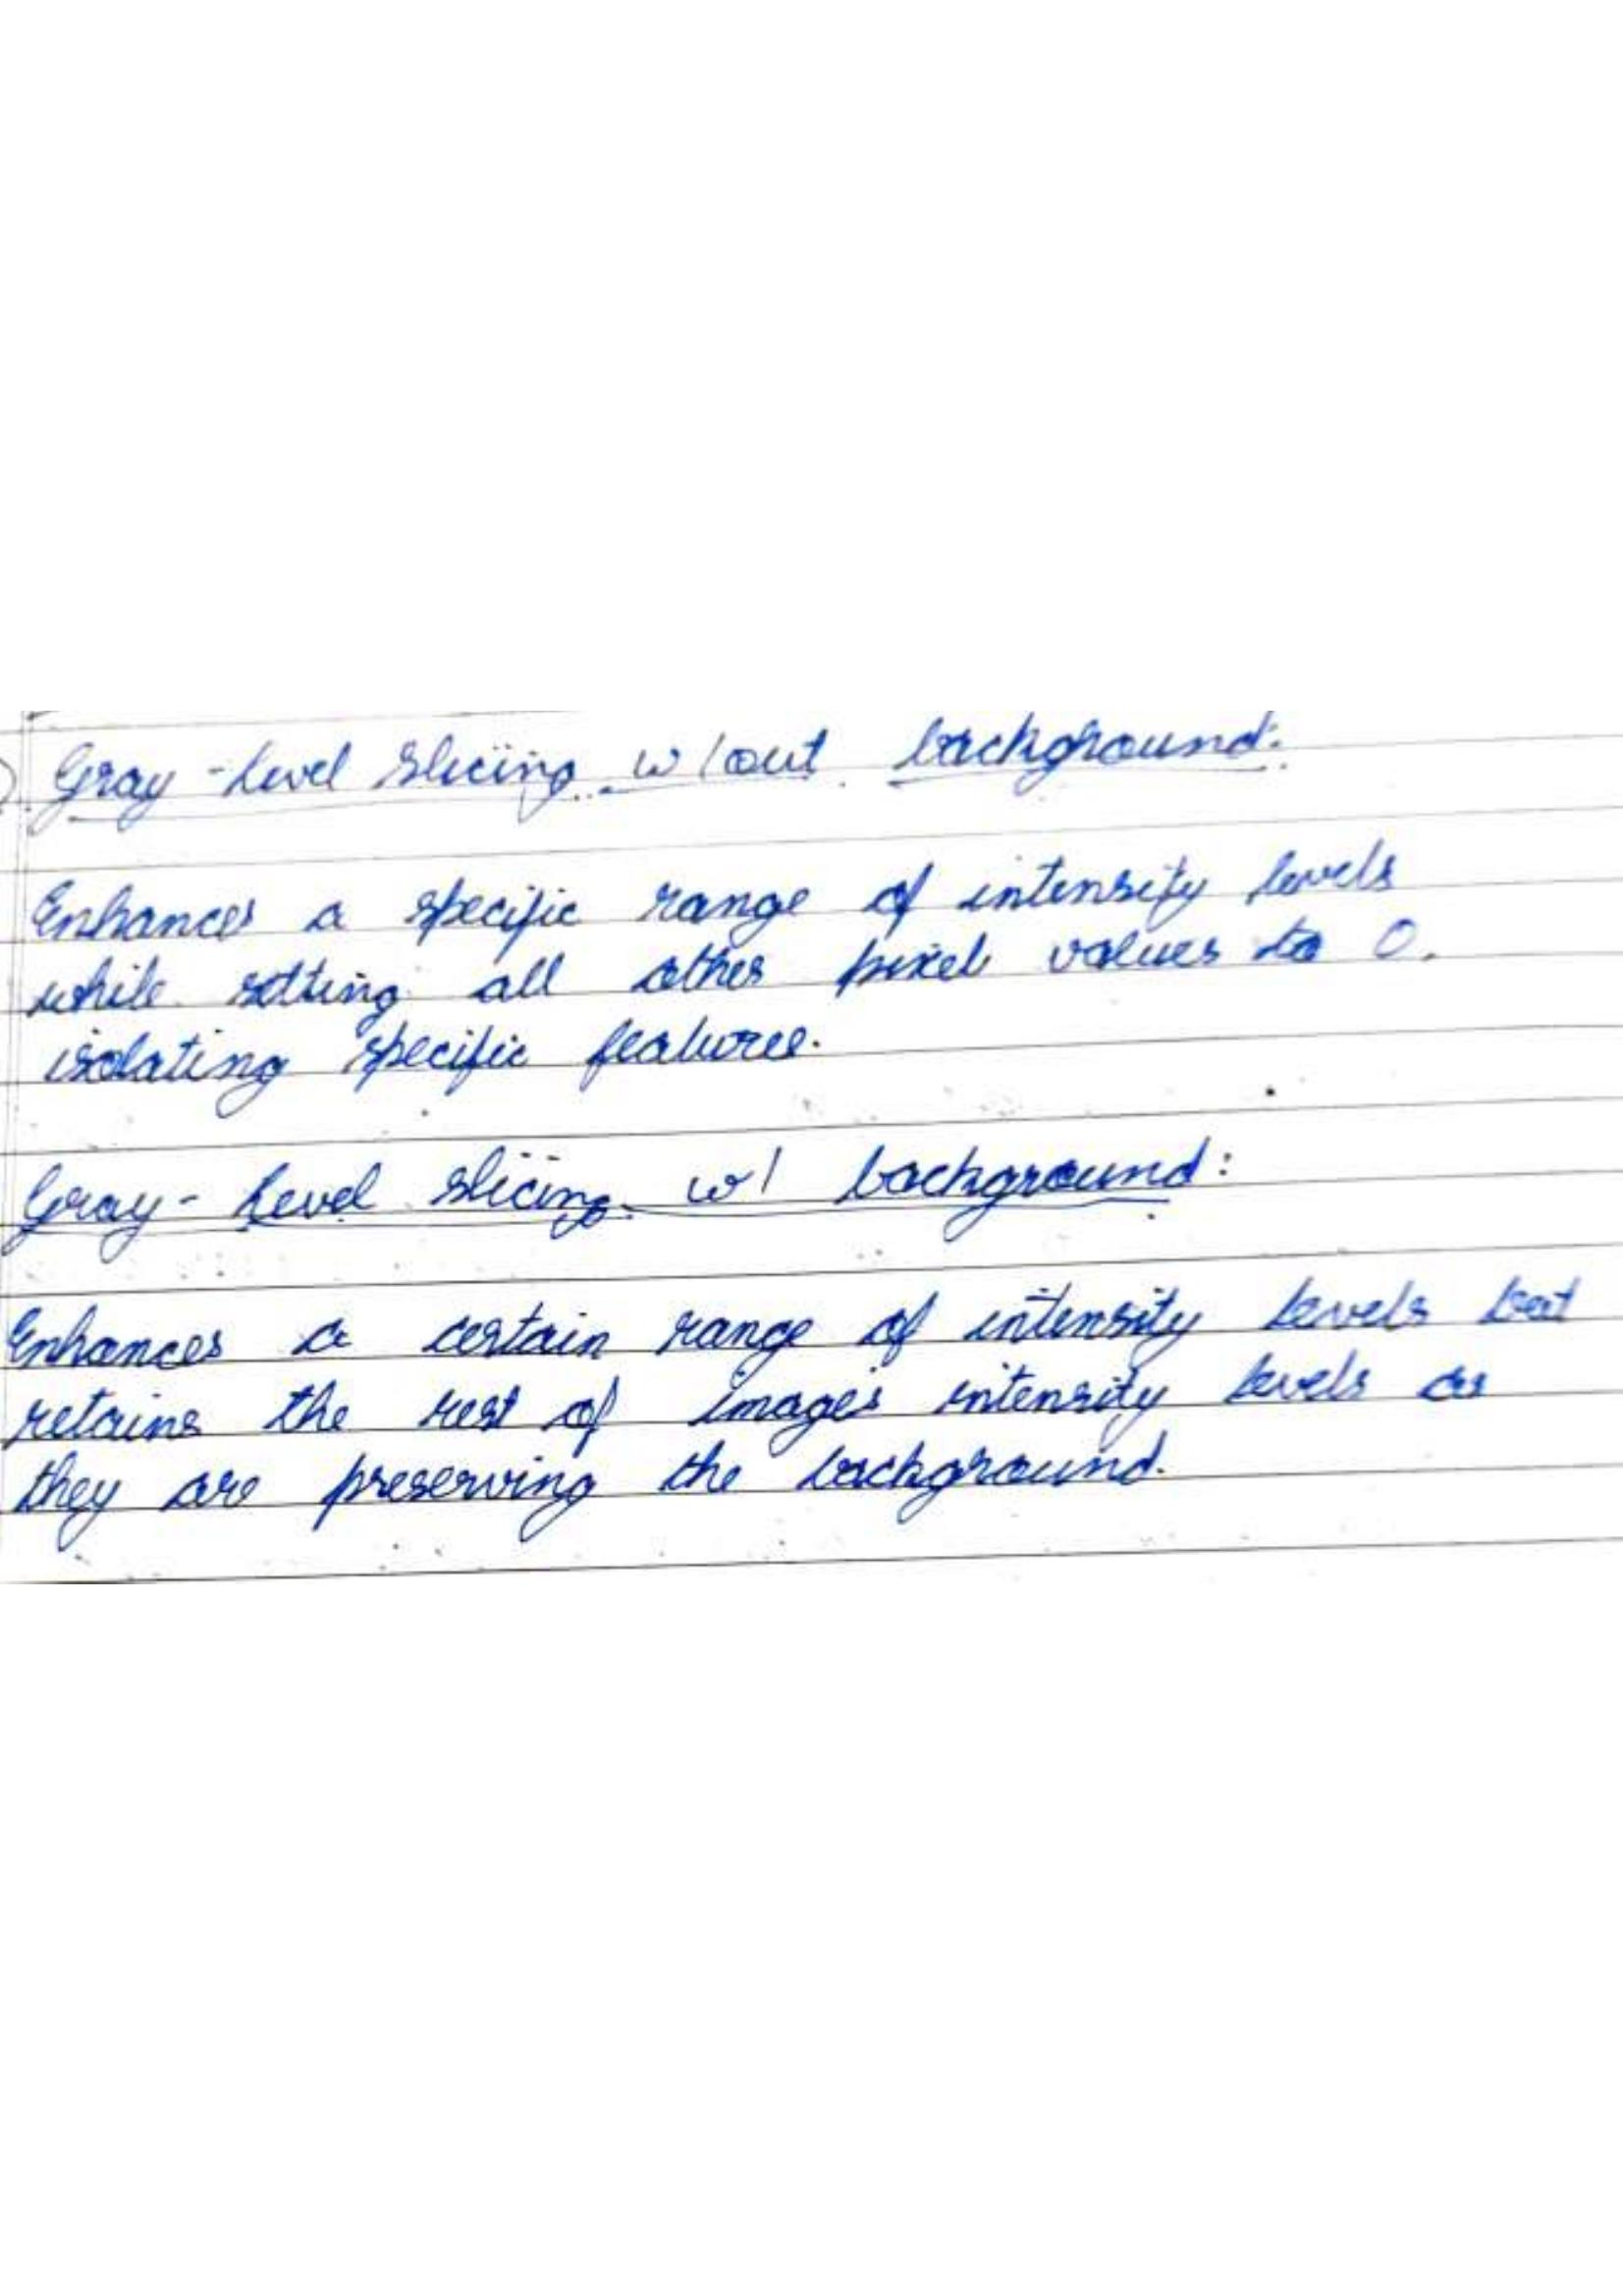 Gray-Level Slicing w/out background:
Enhances a specific range of intensity levels
while setting all other pixel values to 0.
isolating specific features.
Gray-Level slicing w/ background:
Enhances a certain range of intensity levels but
retains the rest of images intensity levels as
they are preserving the background.